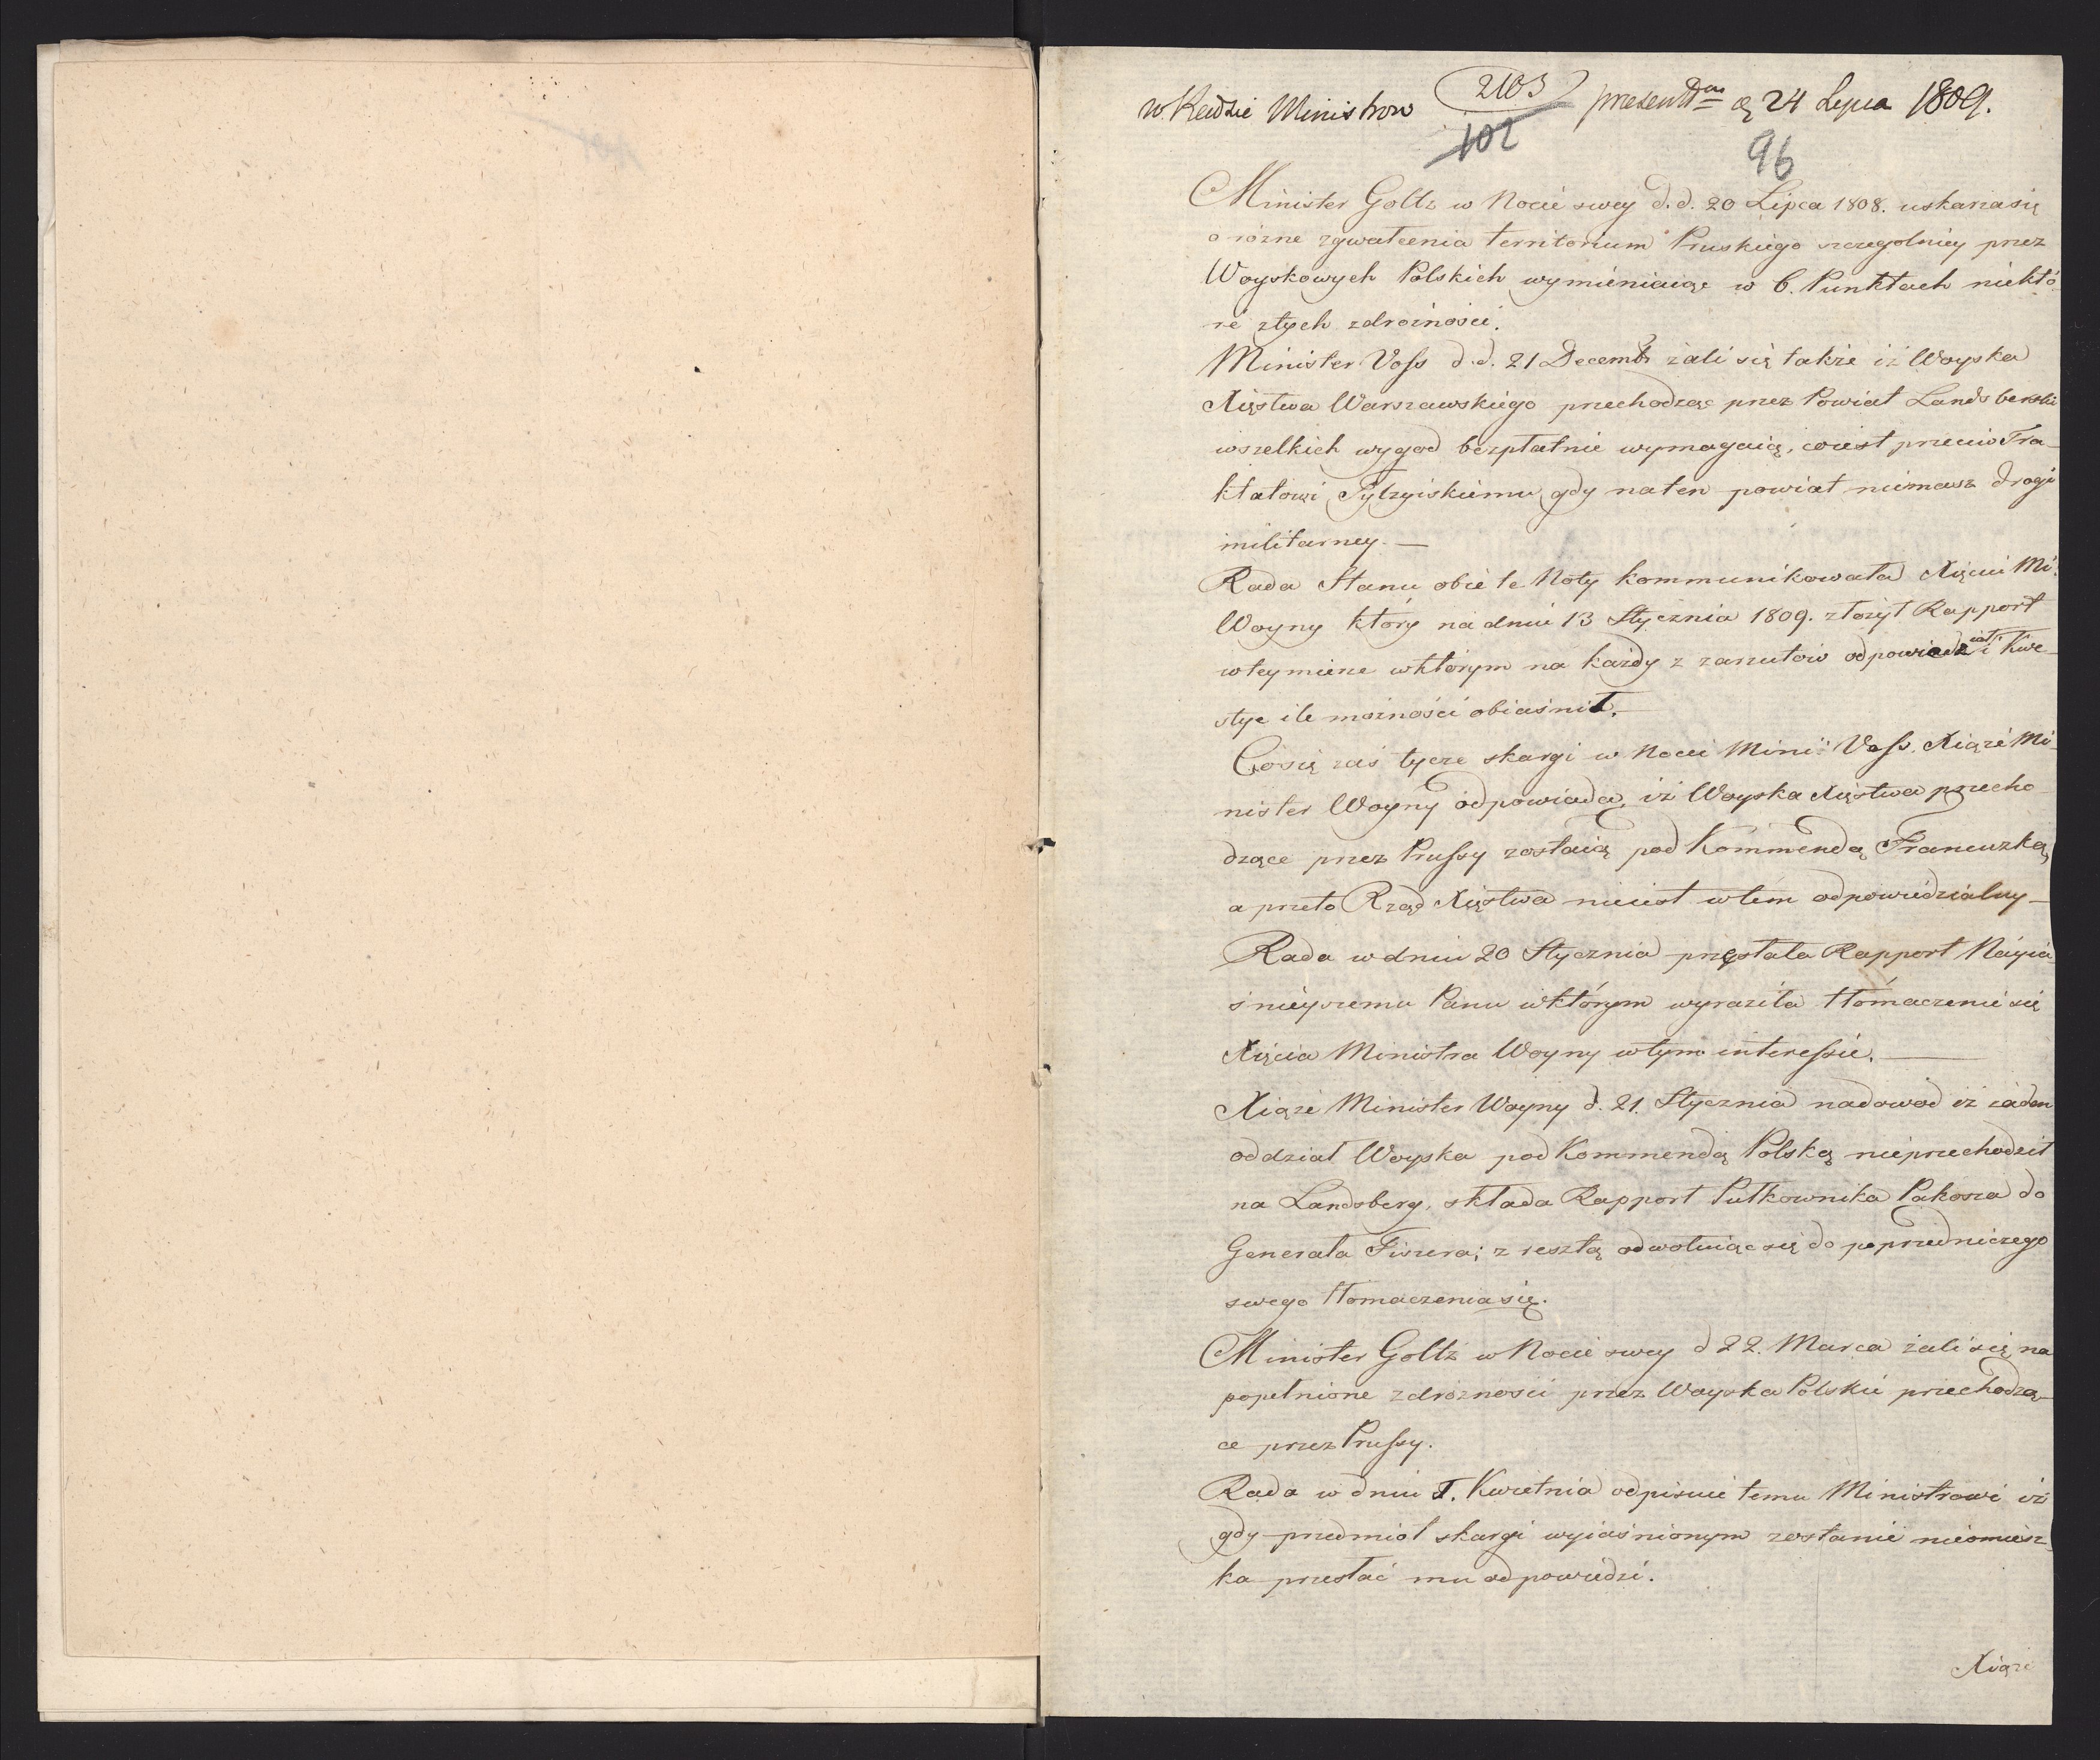 w Radzie Ministrow 2103 presentm d 24 Lipca 1809.
102
96
Minister Goltz w Nocie swey d.d. 20 Lipca 1808. uskarza się
o rózne zgwałcenia territorium Pruskiego szczegolniey przez
Woyskowych Polskich wymieniaiąc w 6. Punktach niektó-
re z tych zdrożności.
Minister Voss d.d. 21 Decemb żali się także iż Woyska
Xięstwa Warszawskiego przechodząc przez Powiat Landsberski
wszelkich wygod bezpłatnie wymagaią, co iest przeciw Tra-
ktatowi Tylzyiskiemu gdy na ten powiat niemasz drogi
militarney. —
Rada Stanu obie te Noty kommunikowała Xięciu Mi:
Woyny który na dniu 13 Stycznia 1809. złożył Rapport
w tey mierze w którym na każdy z zarzutów odpowiedział i Kwe-
stye ile możności obiaśnił.
Co się zaś tycze skargi w Nocie Mini: Voss. Xiąże Mi-
nister Woyny odpowiada, iż Woyska Xięstwa przecho-
dzące przez Prussy zostaią pod Kommendą Francuzką
a przeto Rząd Xięstwa nieiest w tem odpowiedzialny —
Rada w dniu 20 Stycznia przesłała Rapport Nayia-
śnieyszemu Panu w którym wyraziła tłómaczenie się
Xięcia Ministra Woyny w tym interessie. —
Xiąże Minister Woyny d. 21. Stycznia na dowod iż żaden
oddział Woyska pod Kommendą Polską nieprzechodził
na Landsberg, składa Rapport Pułkownika Pakosza do
Generała Fiszera; z resztą odwołuiąc się do poprzedniczego
swego tłomaczenia się.
Minister Goltz w Nocie swey d 22. Marca żali się na
popełnione zdrożności przez Woyska Polskie przechodzą-
ce przez Prussy.
Rada w dniu 1. Kwietnia odpisuie temu Ministrowi iż
gdy przedmiot skargi wyiaśnionym zostanie nieomiesz-
ka przesłać mu odpowiedzi.
Xiąże